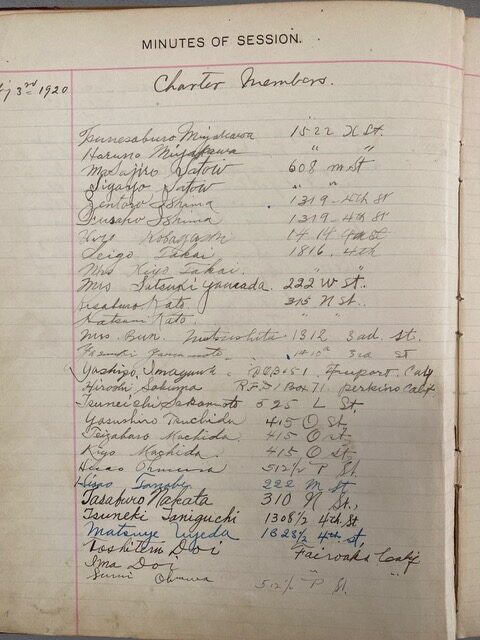 MINUTES OF SESSION.
3rd 1920 Charter Members.
Tsunesaburo Miyakawa 1522 St.
Haruno Miyakawa " "
Masajiro Satow 608 m St
Satow " "
Zentaro Ishima 1319 - 4th St
Fusako Ishima 1319 - 4th St
Kobayashi 1414 St
Seigo Takai 1816. 4th
Mrs Kiyo Takai. "
Mrs Satsuki Yamada. 222 W St.
Kato 315 N St.
Katsuni Kato. "
Mrs. Bun. Matsushita 1312 3rd. St.
Yamamoto 3rd St
Yoshizo Imagawa Box 51 Freeport, Calif
Hiroshi Sakuma R.F.D1 Box 71. Perkins Calif
Tsuneishi Sakamoto 525 L St.
Yasushiro Tsuchida 415 O St.
Teizaburo Machida 415 O St.
Kiyo Machida. 415 O St.
Hisao Ohmura 512½ P St.
Hisao Tanabe 222 M St
Tasaburo Nakata 310 N St.,
Tsuneki Taniguchi 1308½ 4th. St
Matsuye Uyeda 1323½ 4th st,
Toshiteru Doi Fairoaks Calif
Ima Doi "
Sumi Ohmura 512½ P St.